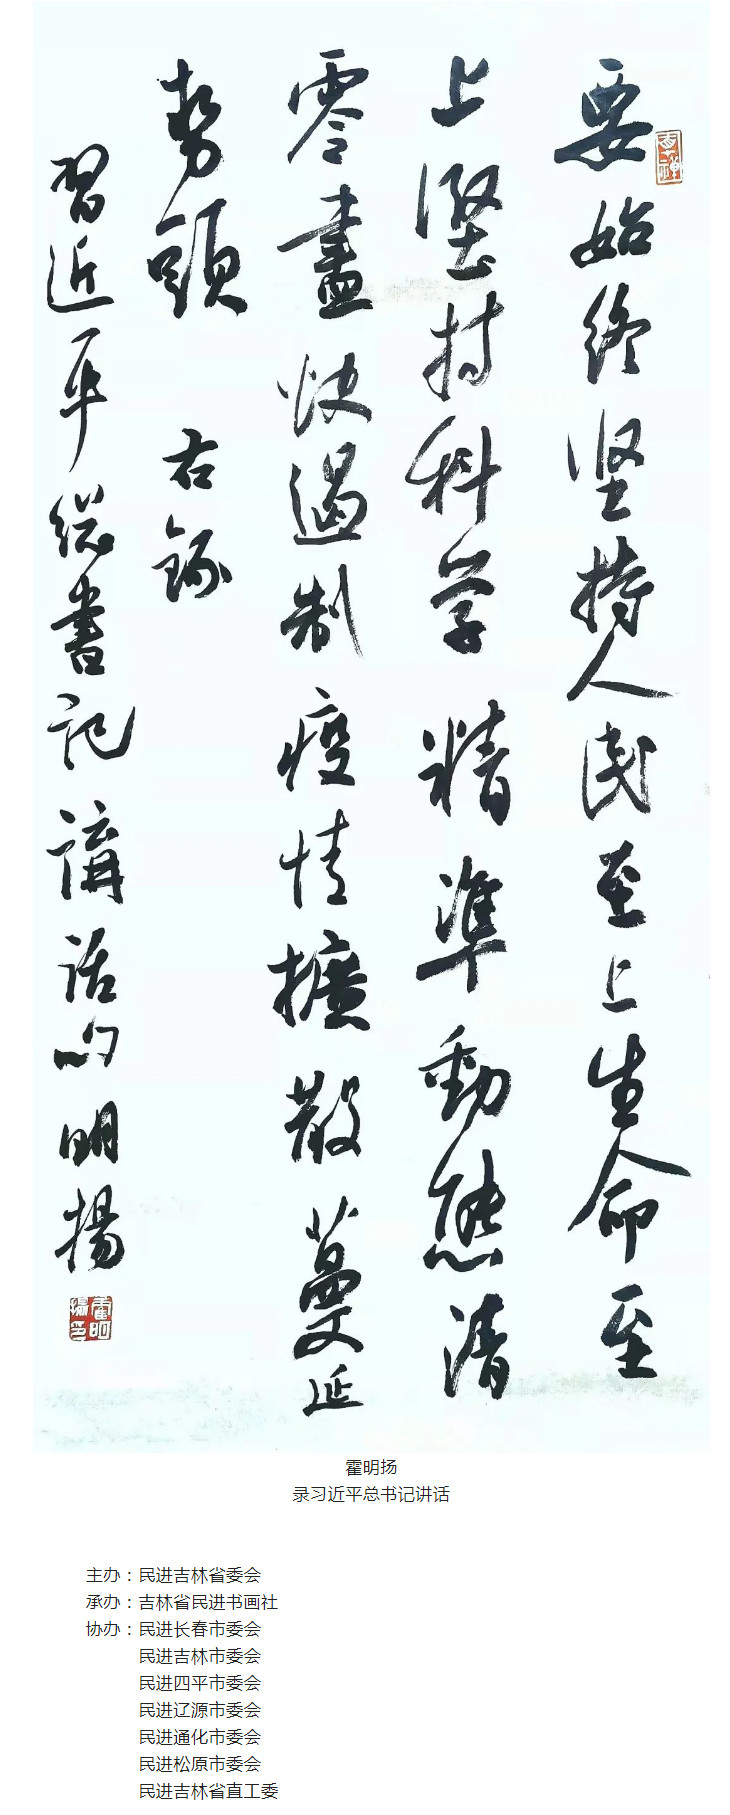 要始终坚持人民至上生命至
上坚持科学精準動態清
零盡快遏制疫情擴散蔓延
势頭 右録
習近平總書記講話 明揚
霍明揚印
霍明扬
录习近平总书记讲话
主办：民进吉林省委会
承办：吉林省民进书画社
协办：民进长春市委会
民进吉林市委会
民进四平市委会
民进辽源市委会
民进通化市委会
民进松原市委会
民进吉林省直工委